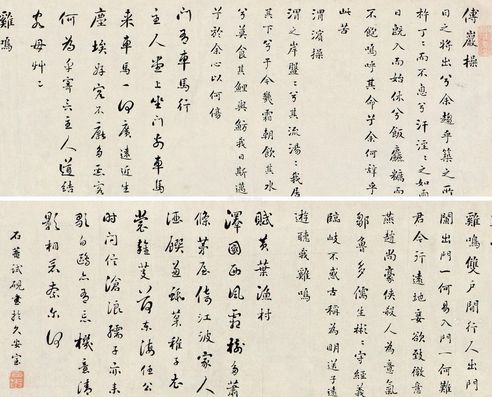 傅巖操
日之將出兮余趨乎築之所
杵丁丁而不息兮汗淫淫之如雨
日既入而始休兮飯麤糲而
不飽嗚呼其命乎余何嗟乎
此苦
渭濱操
渭之岸盤盤兮其流湯湯我居
其下兮于今幾霜朝飲其水
兮莫食其鯉與魴我日斯邁
兮於余心以何傷
門有車馬行
主人堂上坐門前車馬
來車馬一何廣遠近生
塵埃好客不厭多惡客
何為乎寧言主人道結
交毋草草
雞鳴
雞鳴雙戶開行人出門
闌出門一何易入門一何難
君今行遠地妾欲致微意
燕趙尚豪俠殺人為意氣
鄒魯多儒生彬彬守經義
臨岐不古稱為明送子遠
遊聽我雞鳴
賦黃葉漁村
澤國西風霜樹多蕭
條茅屋倚江波家人
酒饌羞菰菜稚子衣
裳雜芰荷東海任公
時問信滄浪孺子亦來
歌白鷗亦有忘機意清
影相看奈尔何
石菴試硯書於久安室